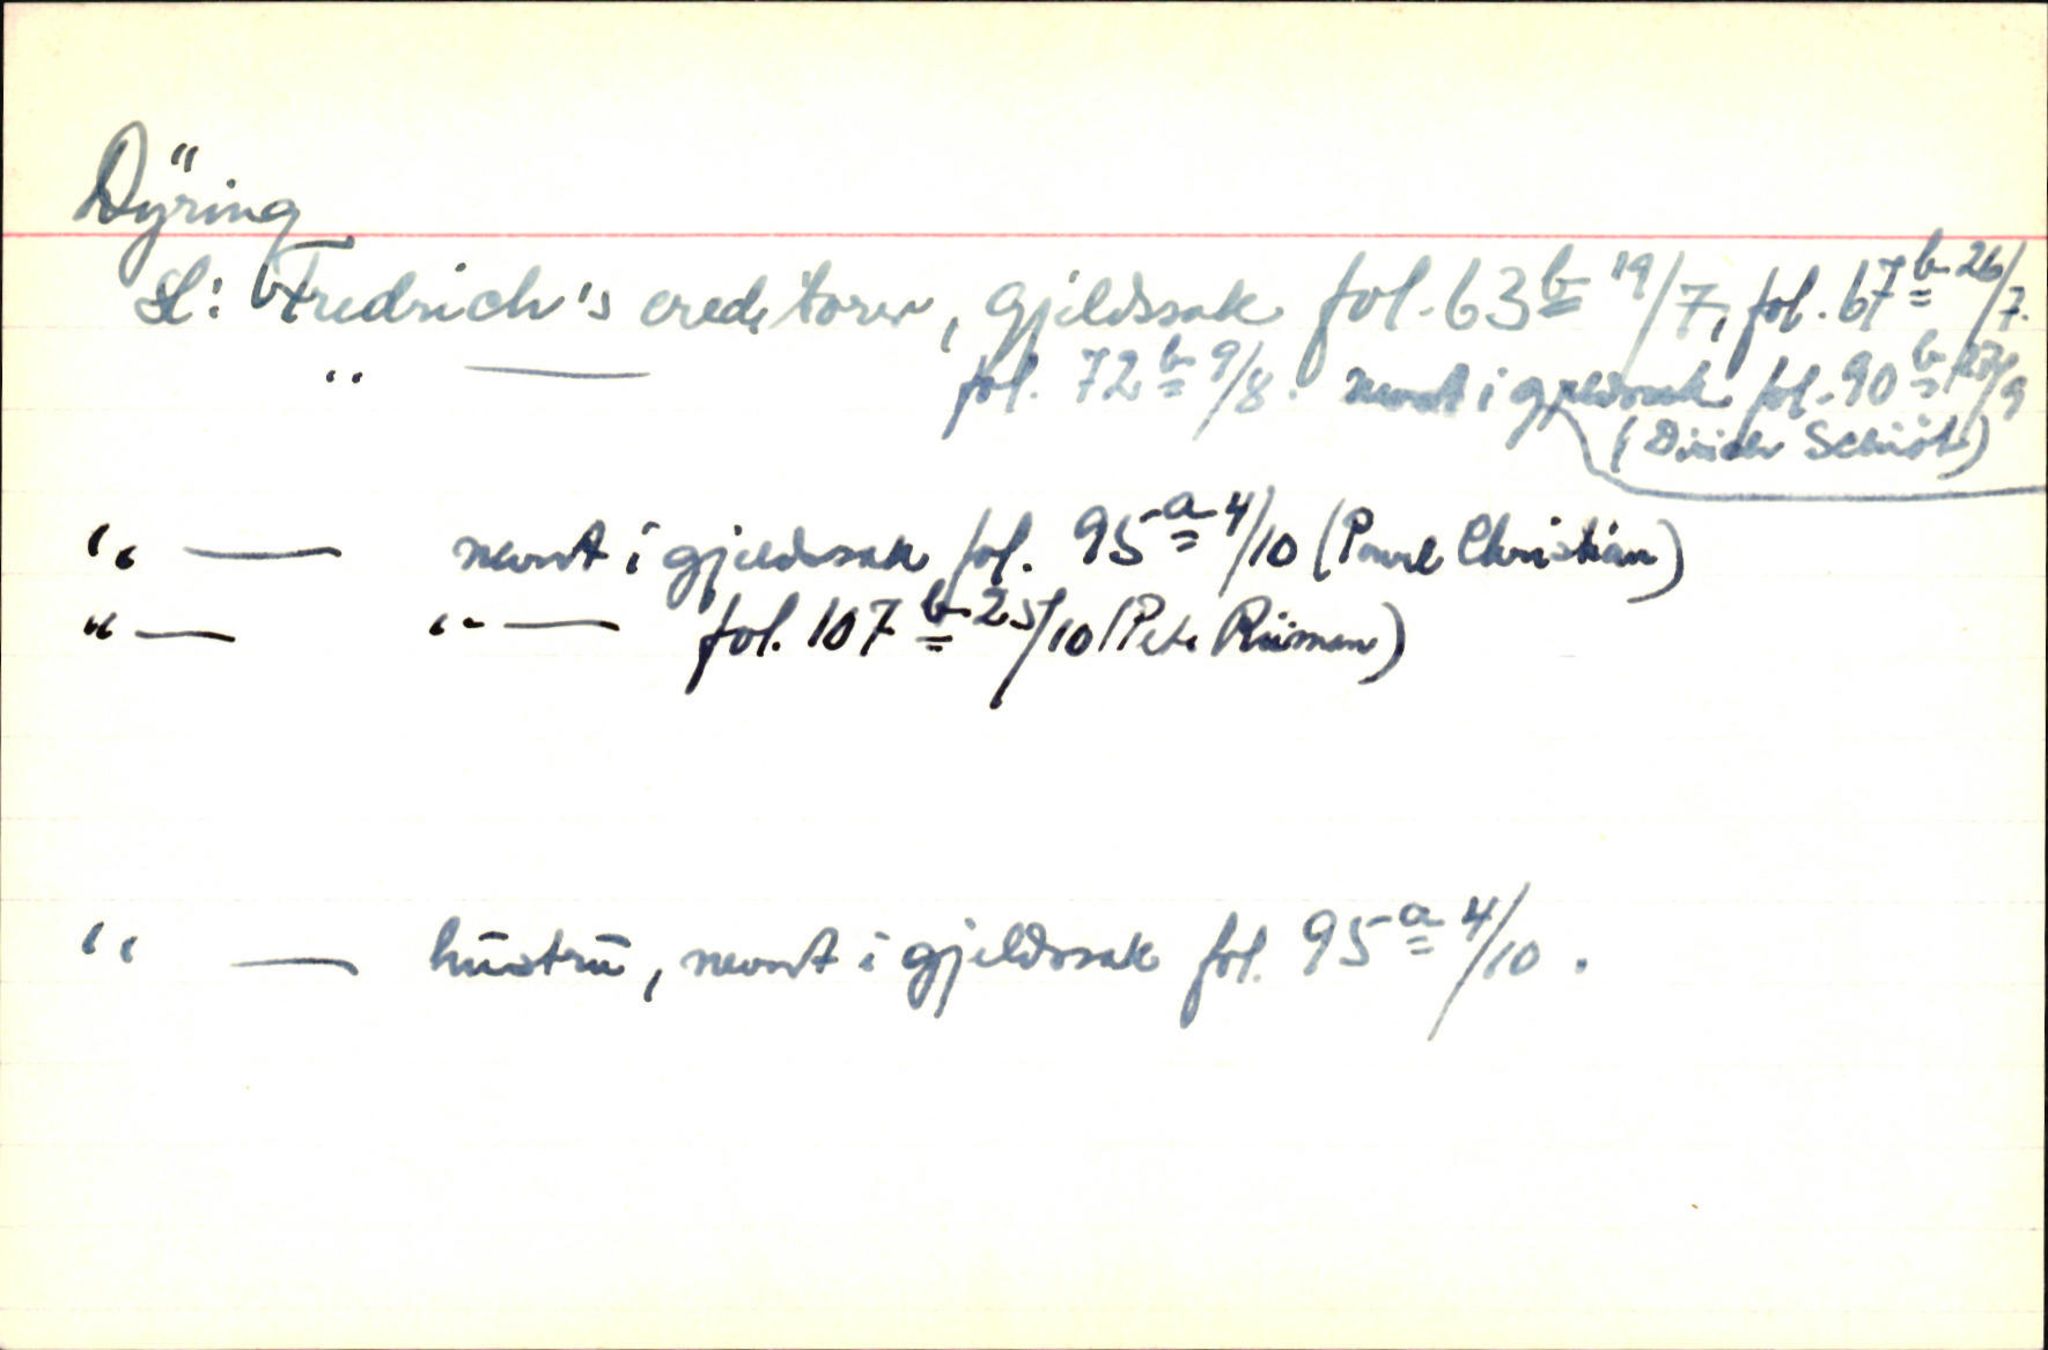 Dÿring
sl: Fredrich's creditorer, gjeldssak fol. 63 b 19/7, fol. 67 b 26/7.
" — fol. 72 b 9/8. nevnt i gjeldssak fol. 90 b /9
(Dirich Schiöt)
" — nevnt i gjeldssak fol. 95 a 4/10 (Pavel Christian)
" — " — fol. 107 b 25/10 (Peter Riisman)
" — hustru, nevnt i gjeldssak fol. 95 a 4/10.